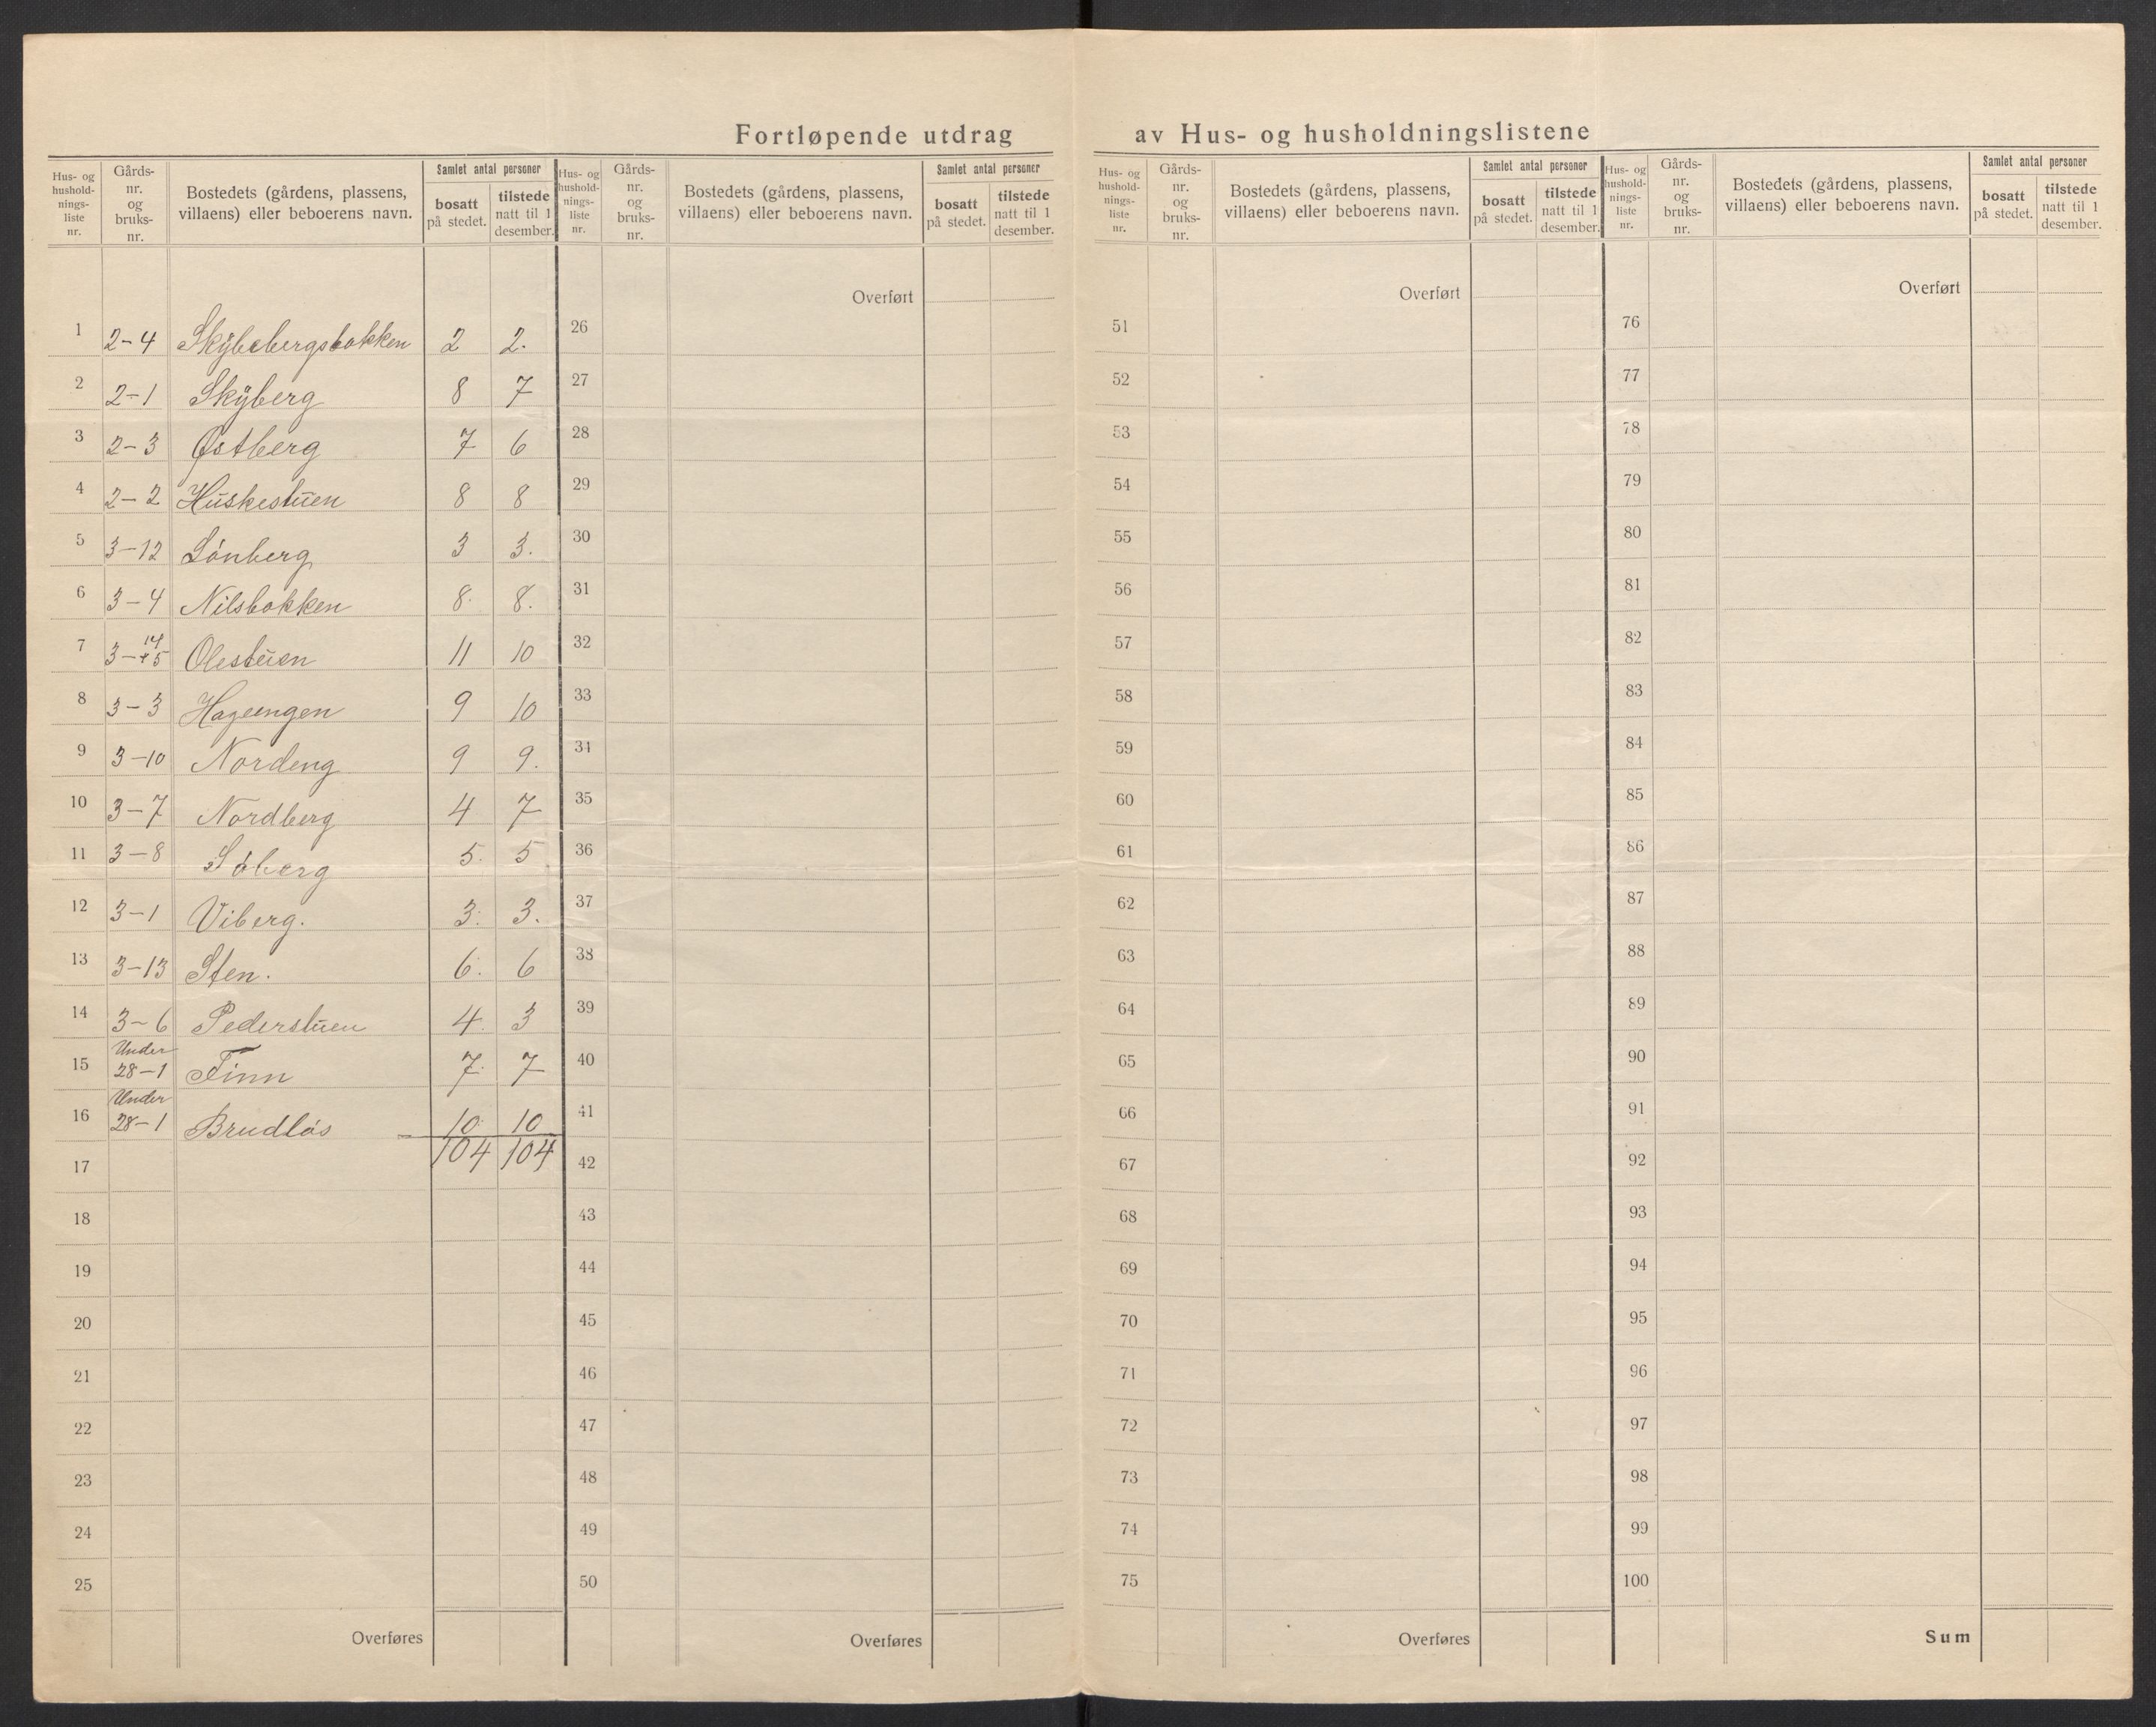 Fortløpende utdrag av Hus- og husholdningslistene
Hus- og hushold-nings-liste nr. Gårds-nr. og bruks-nr. Bostedets (gårdens, plassens, villaens) eller beboerens navn. Samlet antal personer bosatt på stedet. tilstede natt til 1 desember.
Hus- og hushold-nings-liste nr. Gårds-nr. og bruks-nr. Bostedets (gårdens, plassens, villaens) eller beboerens navn. Samlet antal personer bosatt på stedet. tilstede natt til 1 desember.
Hus- og hushold-nings-liste nr. Gårds-nr. og bruks-nr. Bostedets (gårdens, plassens, villaens) eller beboerens navn. Samlet antal personer bosatt på stedet. tilstede natt til 1 desember.
Hus- og hushold-nings-liste nr. Gårds-nr. og bruks-nr. Bostedets (gårdens, plassens, villaens) eller beboerens navn. Samlet antal personer bosatt på stedet. tilstede natt til 1 desember.
Overført Overført Overført
1 2-4 Skybebergsbakken 2 2. 26 51 76
2 2-1 Skyberg 8 7 27 52 77
3 2-3 Østberg 7 6 28 53 78
4 2-2 Huskestuen 8 8 29 54 79
5 3-12 Lónberg 3 3. 30 55 80
6 3-4 Nilsbakken 8. 8. 31 56 81
7 3-14+5 Olestuen 11 10 32 57 82
8 3-3 Hageengen 9 10 33 58 83
9 3-10 Nordeng 9 9. 34 59 84
10 3-7 Nordberg 4 7 35 60 85
11 3-8 Sóberg 5. 5 36 61 86
12 3-1 Viberg. 3. 3. 37 62 87
13 3-13 Sten. 6. 6 38 63 88
14 3-6 Pederstuen 4. 3 39 64 89
15 Under 28-1 Finn 7. 7 40 65 90
16 Under 28-1 Brudlós 10. 10 41 66 91
17 104 104 42 67 92
18 43 68 93
19 44 69 94
20 45 70 95
21 46 71 96
22 47 72 97
23 48 73 98
24 49 74 99
25 50 75 100
Overføres Overføres Overføres Sum